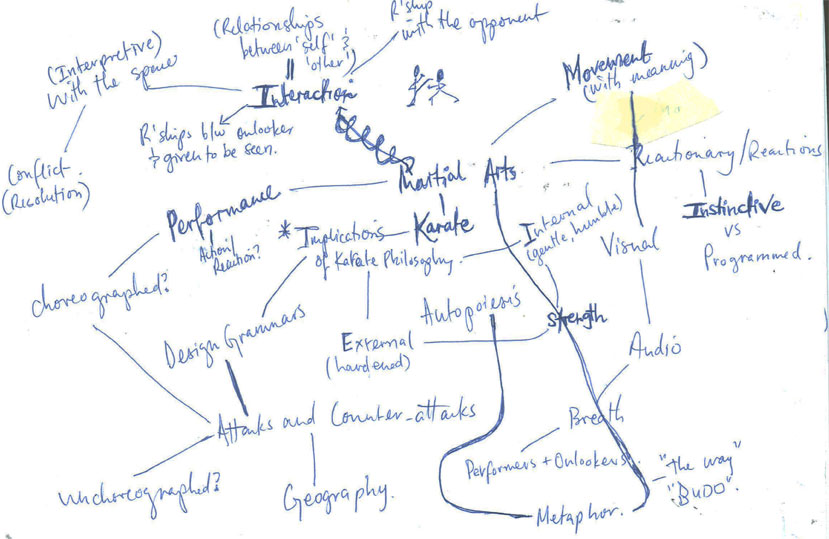 (Relationships
between 'self' &
'other')
R'ship
with the opponent
(Interpretive)
with the space
Interaction
Movement
(with meaning)
R'ships b/w onlooker
& given to be seen.
Conflict
(Resolution)
Martial Arts
Reactionary/Reactions
Instinctive
vs
Programmed.
Performance
Action/
Reaction?
Karate
* Implications
of Karate Philosophy.
Internal
(gentle, humble)
Visual
Choreographed?
Design Grammars
External
(hardened)
Autopoiesis
Strength
Audio
Attacks and Counter-attacks
Breath
Performers + Onlookers.
Unchoreographed?
Geography.
Metaphor.
"the way"
"BUDO".